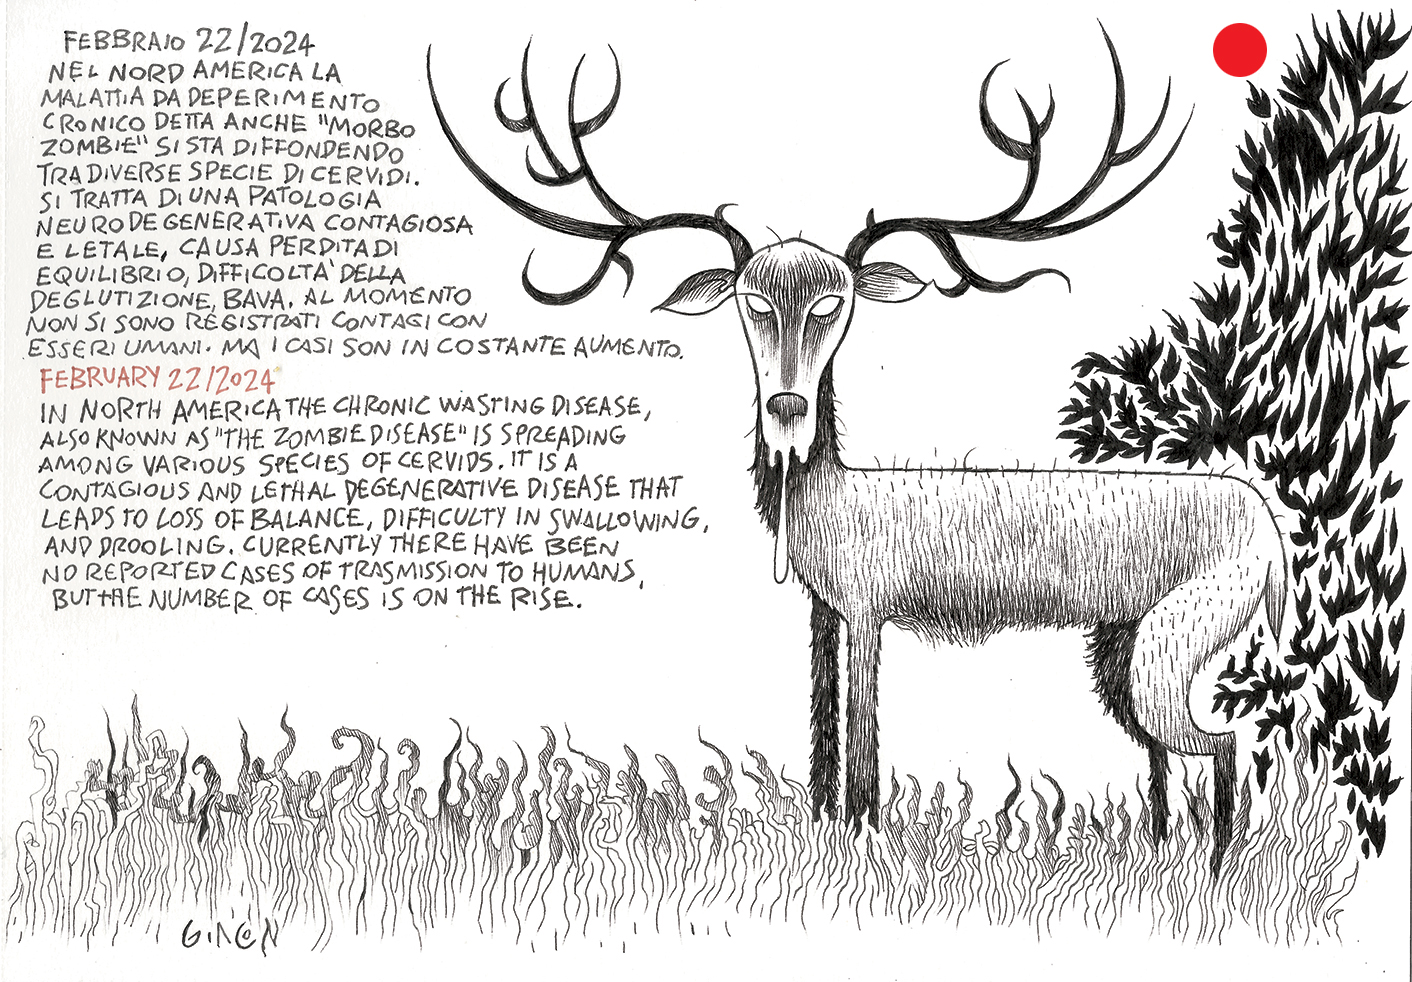 FEBBRAIO 22/2024
NEL NORD AMERICA LA
MALATTIA DA DEPERIMENTO
CRONICO DETTA ANCHE "MORBO
ZOMBIE" SI STA DIFFONDENDO
TRA DIVERSE SPECIE DI CERVIDI.
SI TRATTA DI UNA PATOLOGIA
NEURODEGENERATIVA CONTAGIOSA
E LETALE, CAUSA PERDITA DI
EQUILIBRIO, DIFFICOLTA' DELLA
DEGLUTIZIONE, BAVA. AL MOMENTO
NON SI SONO REGISTRATI CONTAGI CON
ESSERI UMANI. MA I CASI SON IN COSTANTE AUMENTO.
FEBRUARY 22/2024
IN NORTH AMERICA THE CHRONIC WASTING DISEASE,
ALSO KNOWN AS "THE ZOMBIE DISEASE" IS SPREADING
AMONG VARIOUS SPECIES OF CERVIDS. IT IS A
CONTAGIOUS AND LETHAL DEGENERATIVE DISEASE THAT
LEADS TO LOSS OF BALANCE, DIFFICULTY IN SWALLOWING,
AND DROOLING. CURRENTLY THERE HAVE BEEN
NO REPORTED CASES OF TRASMISSION TO HUMANS,
BUT THE NUMBER OF CASES IS ON THE RISE.